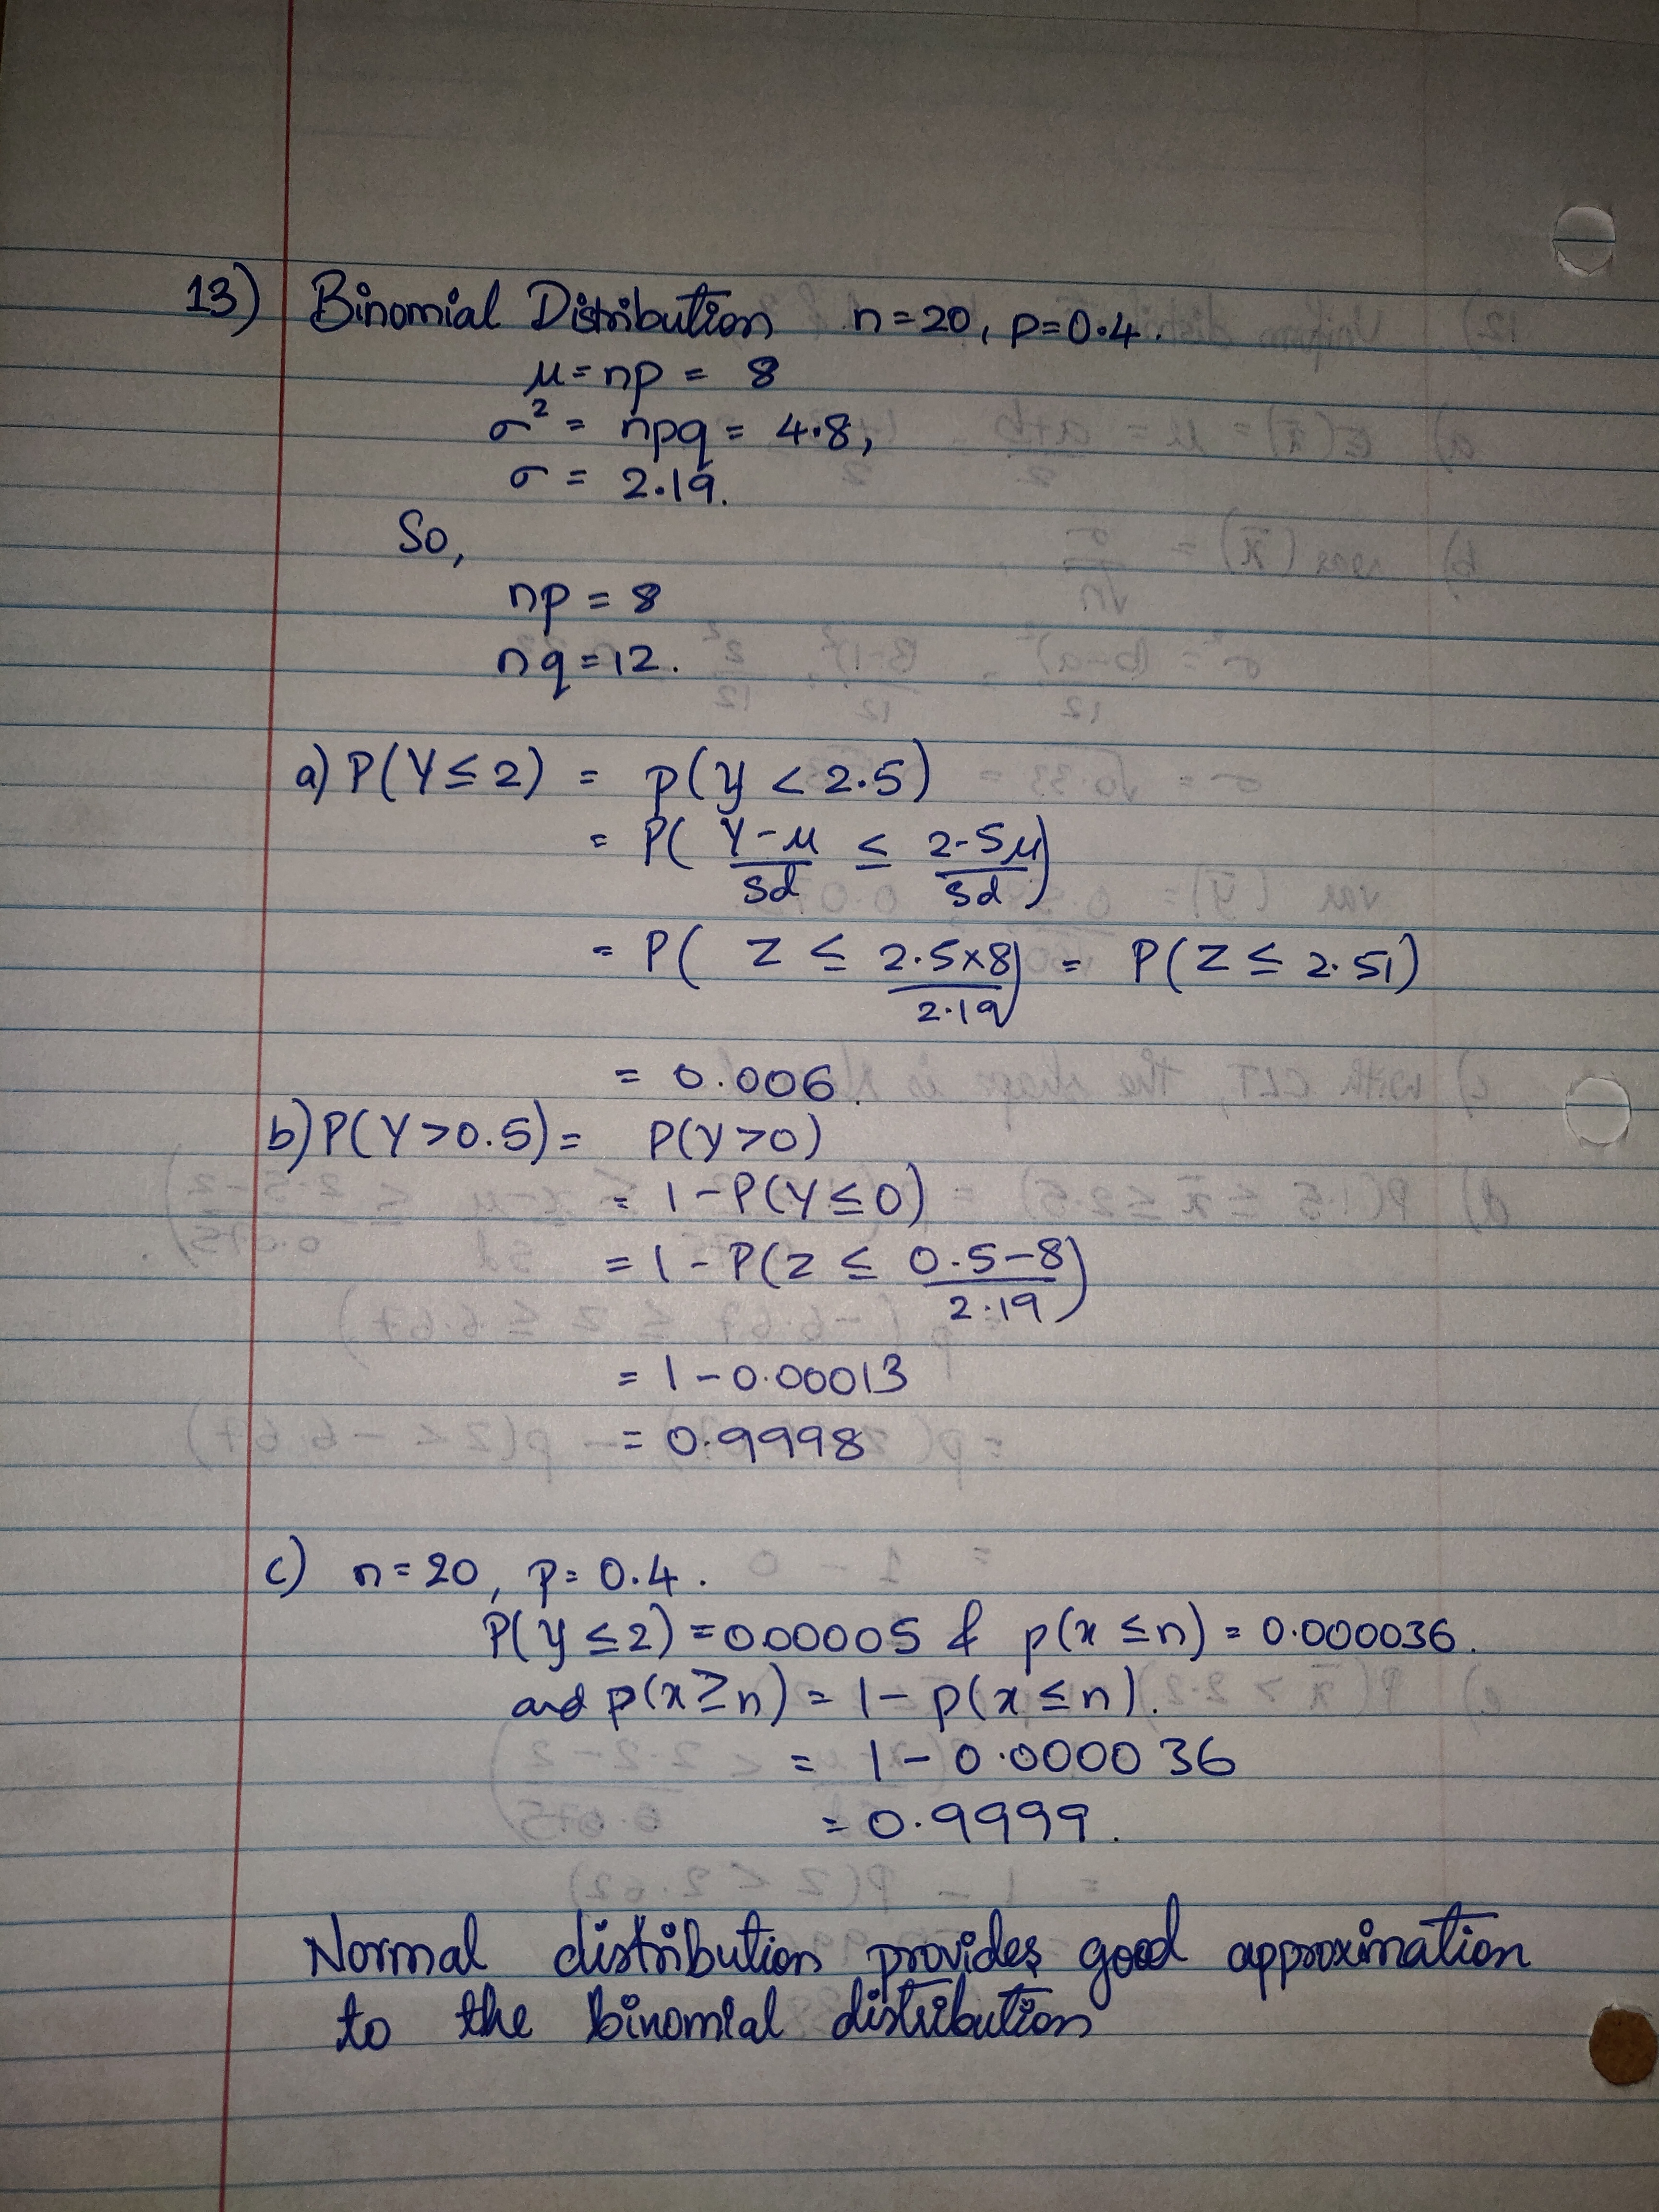 13) Binomial Distribution n=20, p=0.4.
μ=np = 8
σ² = npq = 4.8,
σ = 2.19.
So,
np = 8
nq =12.
a) P(Y≤2) = p(y <2.5)
= P( Y-μ/sd ≤ 2-5μ/sd )
= P( Z ≤ 2.5×8/2.19 ) = P(Z≤ 2.51)
= 0.006.
b) P(Y>0.5)= P(Y>0)
= 1-P(Y≤0)
= 1-P(z ≤ 0.5-8/2.19 )
= 1-0.00013
= 0.9998
c) n=20, p=0.4.
P(y≤2)=0.00005 & p(x≤n)= 0.000036.
and p(x≥n)= 1- p(x≤n).
= 1-0.000036
=0.9999.
Normal distribution provides good approximation
to the binomial distribution